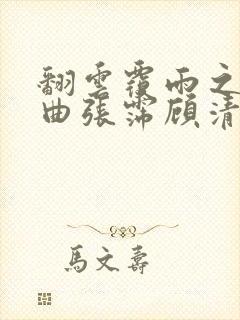 翻雲覆雨之
曲張霈顧清
馬文壽